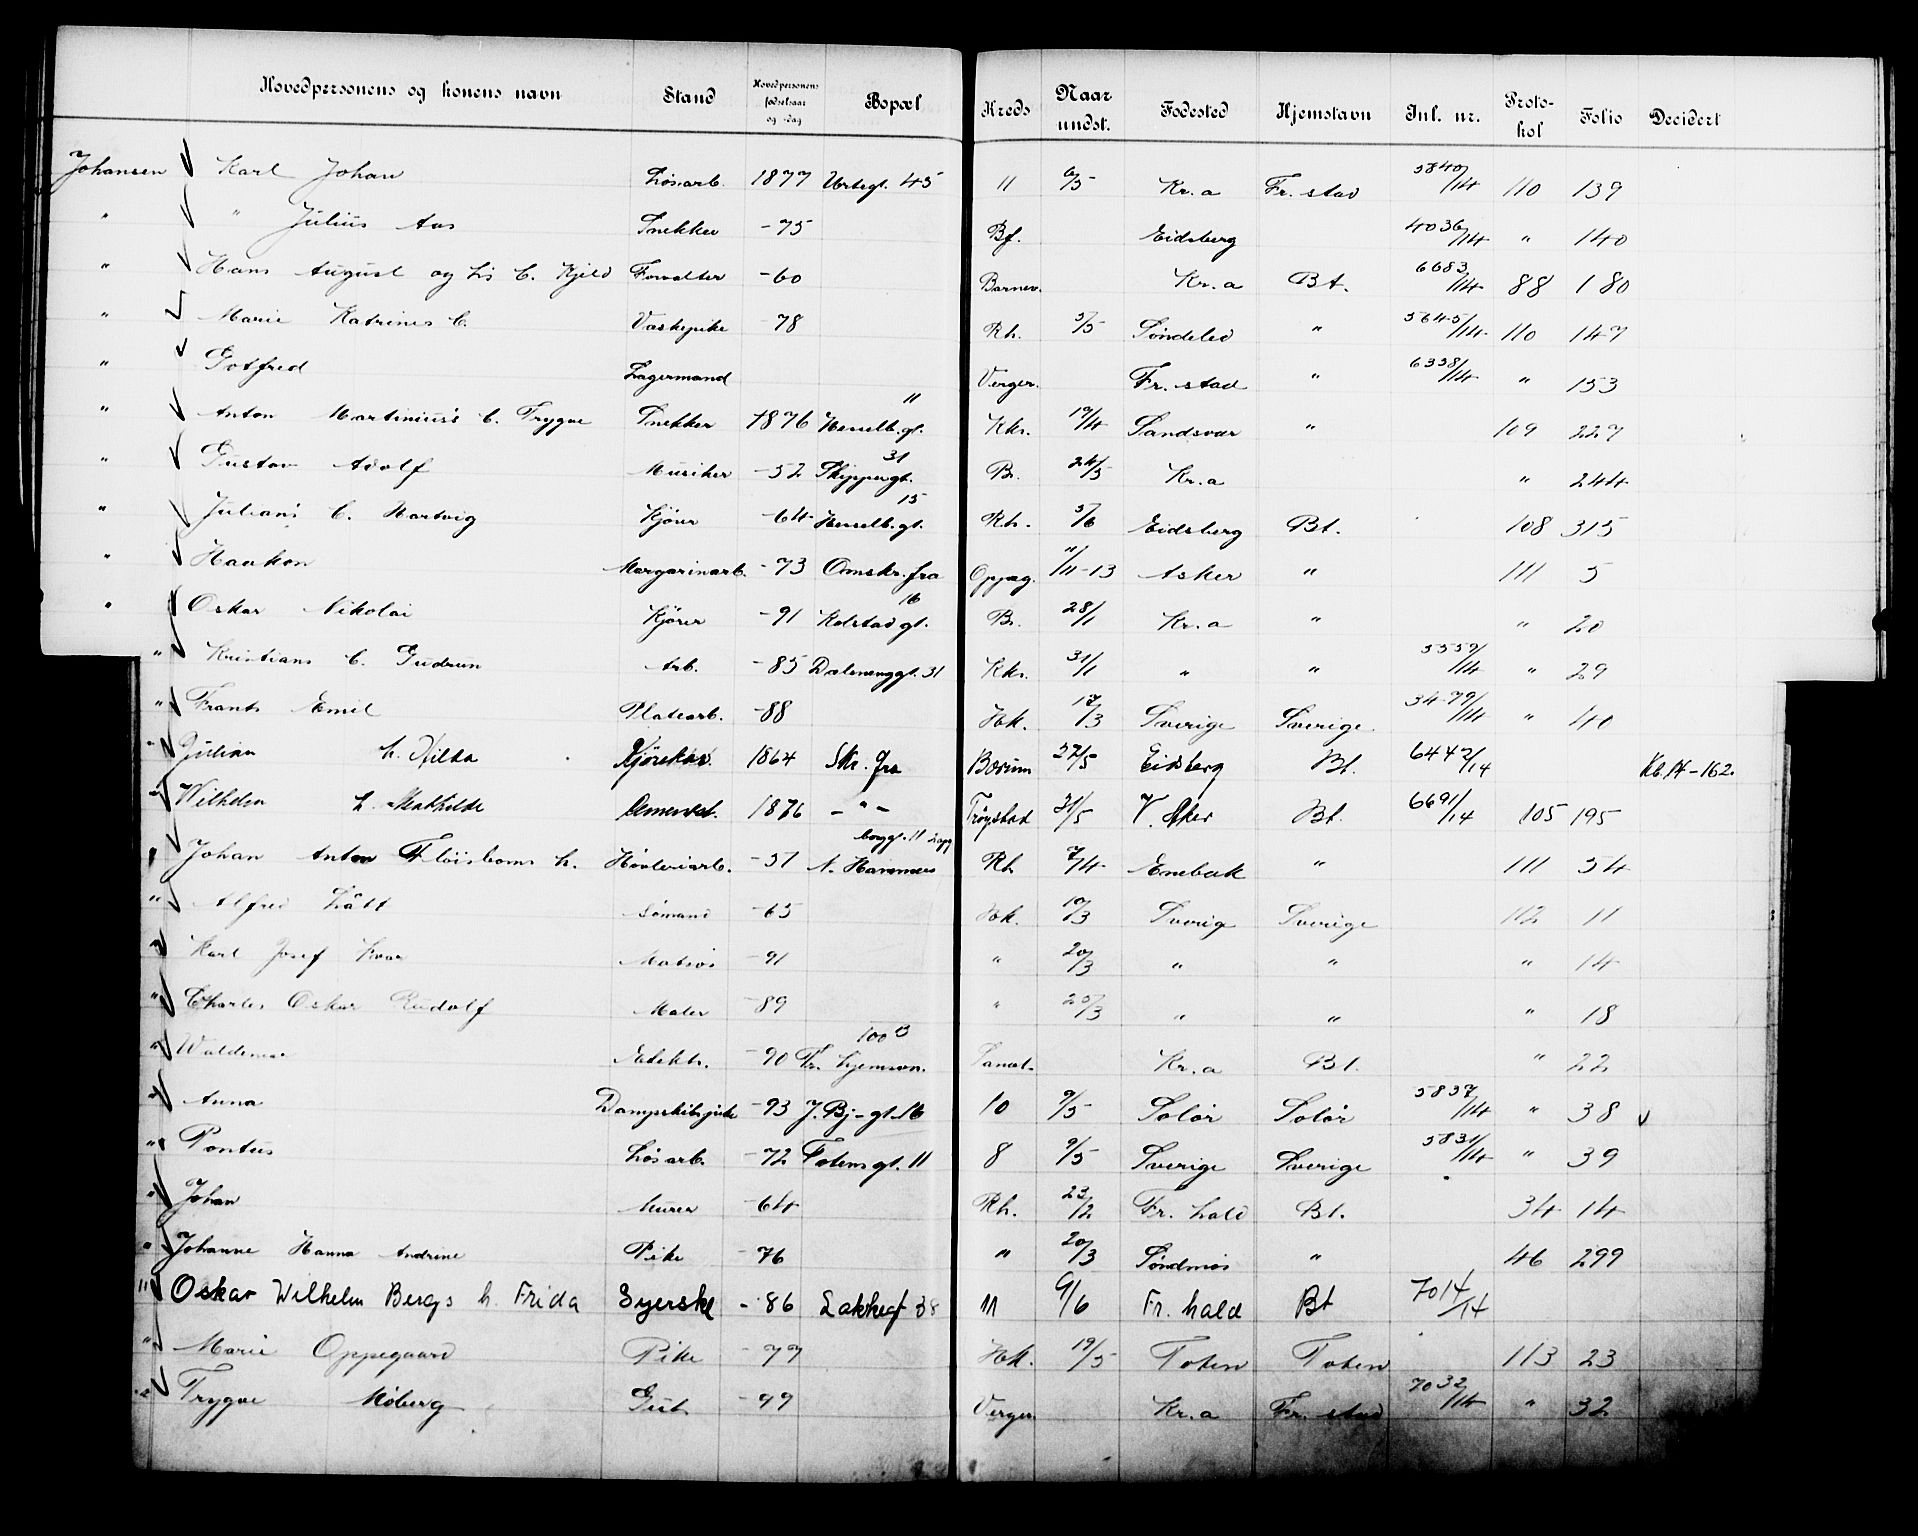 Hovedpersonens og konens navn Stand Hovedpersonens fødselsaar og -dag Bopæl Kreds Naar undst. Fødested Hjemstavn Inl. nr. Proto-kol Folio Decidert
Johansen Karl Johan Løsarb. 1877 Urtegt. 45 11 6/5 Kr.a Fr. stad 5840/14 110 139
" " Julius Aas Snekker -75 Bf. Eidsberg 4036/14 " 140
" Hans August og Lis C. Kjeld Forvalter -60 Barnev. Kr.a Bt. 6683/14 88 180
" Marie Katrines C. Vaskepike -78 Rh. 5/5 Søndeled " 5645/14 110 147
" Gotfred Lagermand Verger. Fr. stad " 6338/14 " 153
" Anton Martinius's C. Trygve Snekker 1876 Hesselb.gt. 11 Kkr. 19/4 Sandsvær " 109 227
" Gustav Adolf Musiker -52 Skippergt. 31 Br. 24/5 Kr.a " 244
" Julians C. Hartvig Kjører -64 Hesselb.gt. 15 Rh. 5/6 Eidsberg Bt. 108 315
" Haakon Margarinarb. -73 Omskr. fra Oppeg. 11/11-13 Asker " 111 5
" Oskar Nikolai Kjører -91 Kolstadgt. 16 Br. 28/1 Kr.a " " 20
" Kristians C. Gudrun Arb. -85 Dælenenggt. 31 Kkr. 31/1 " " 5359/14 " 29
" Frants Emil Platearb. -88 Hk. 17/3 Sverige Sverige 3479/14 " 40
" Julian h. Hilda Kjørekar. 1864 Skr. fra Bærum 27/5 Eidsberg Bt. 6447/14 Kb.14-162.
" Wilhelm h. Mathilde 1876 - " - Trøgstad 31/5 V. Aker Bt. 6691/14 105 195
" Johan Anton Fløisboms h. Høvleriarb. -57 N. Hammers borggt. 11 Rh 7/4 Enebak " 111 54
" Alfred Lätt Sømand -65 Hk. 17/3 Sverig Sverige 112 11
" Karl Josef Matros -91 " 20/3 " " " 14
" Charles Oskar Rudolf Maler -89 " 25/3 " " " 18
" Waldemar Elektr. -90 Tr.hjemsvn. 100 B Sanat. Kr.a Bt. " 22
" Anna Dampskibspike -93 J. Bj-gt. 16 10 9/5 Solør Solør 5837/14 " 38
" Pontus Løsarb. -72 Totensgt. 11 8 9/5 Sverige Sverige 5831/14 " 39
" Johan Murer -64 Rh. 23/2 Fr. hald Bt. 34 14
" Johanne Hanna Andrine Pike -76 " 20/3 Søndmør " 46 299
" Oskar Wilhelm Bergs h. Frida Syerske -86 Lakkegt 38 11 9/6 Fr. hald Bt 7014/14
" Marie Oppegaard Pike -77 Hk. 19/5 Toten Toten 113 23
" Trygve Moberg Gut -99 Verger. Kr.a Fr. stad 7032/14 " 32